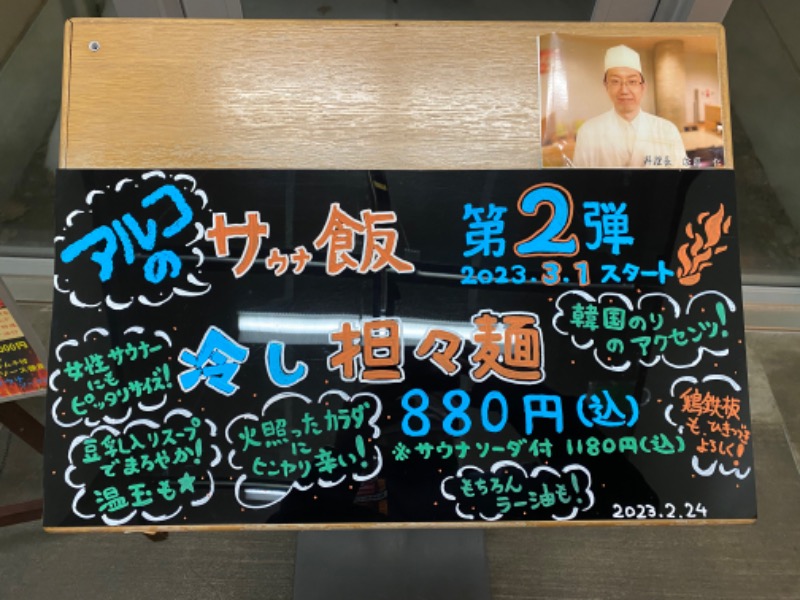 料理長
アルコの
サウナ飯
第2弾
2023.3.1 スタート
冷し担々麺
韓国のり
のアクセンツ!
女性サウナー
にも
ピッタリサイズ!
880円(込)
※サウナソーダ付 1180円(込)
鶏鉄板
もひきつづき
よろしく!
豆乳入りスープ
でまろやか!
温玉も★
火照ったカラダ
に
ヒンヤリ辛い!
もちろん
ラー油も!
2023.2.24